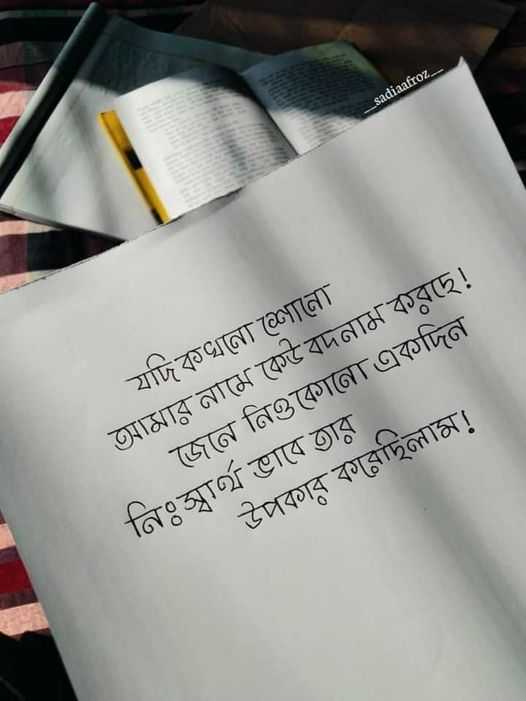 __sadiaafroz__
যদি কখনো শোনো
আমার নামে কেউ বদনাম করছে!
জেনে নিও কোনো একদিন
নিঃস্বার্থ ভাবে তার
উপকার করেছিলাম!